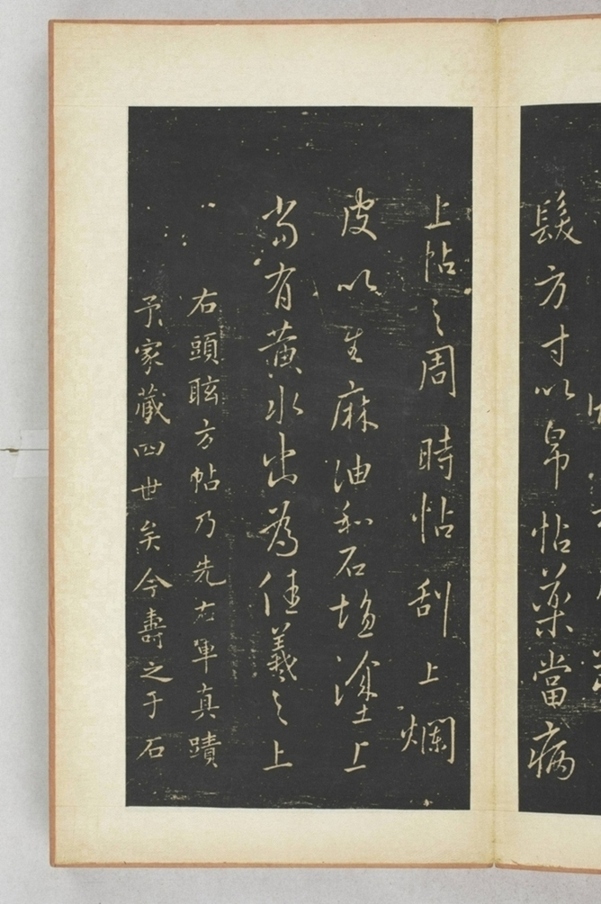 髮方寸以帛帖藥當病
上帖之周時帖刮上爛
皮以生麻油和石塩塗上
當有黃水出為佳羲之上
右頭眩方帖乃先右軍真蹟
予家藏四世矣今壽之于石